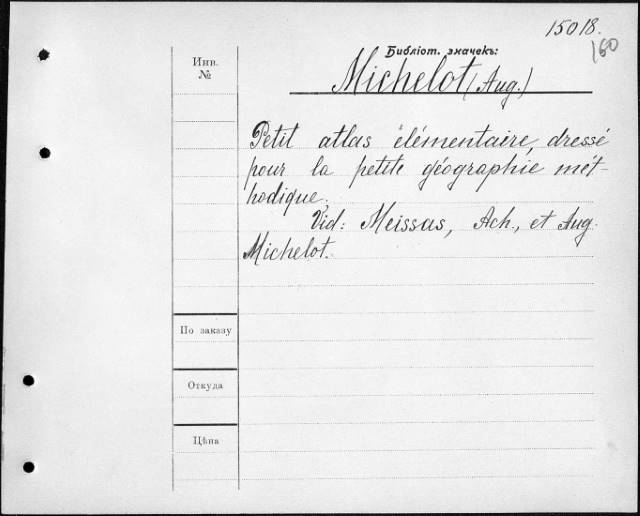 15018.
160
Инв.
№
Библіот. значекъ:
Michelot (Aug.)
Petit atlas élémentaire, dressé
pour la petite géographie mét-
hodique.
Vid: Meissas, Ach., et Aug.
Michelot.
По заказу
Откуда
Цѣна